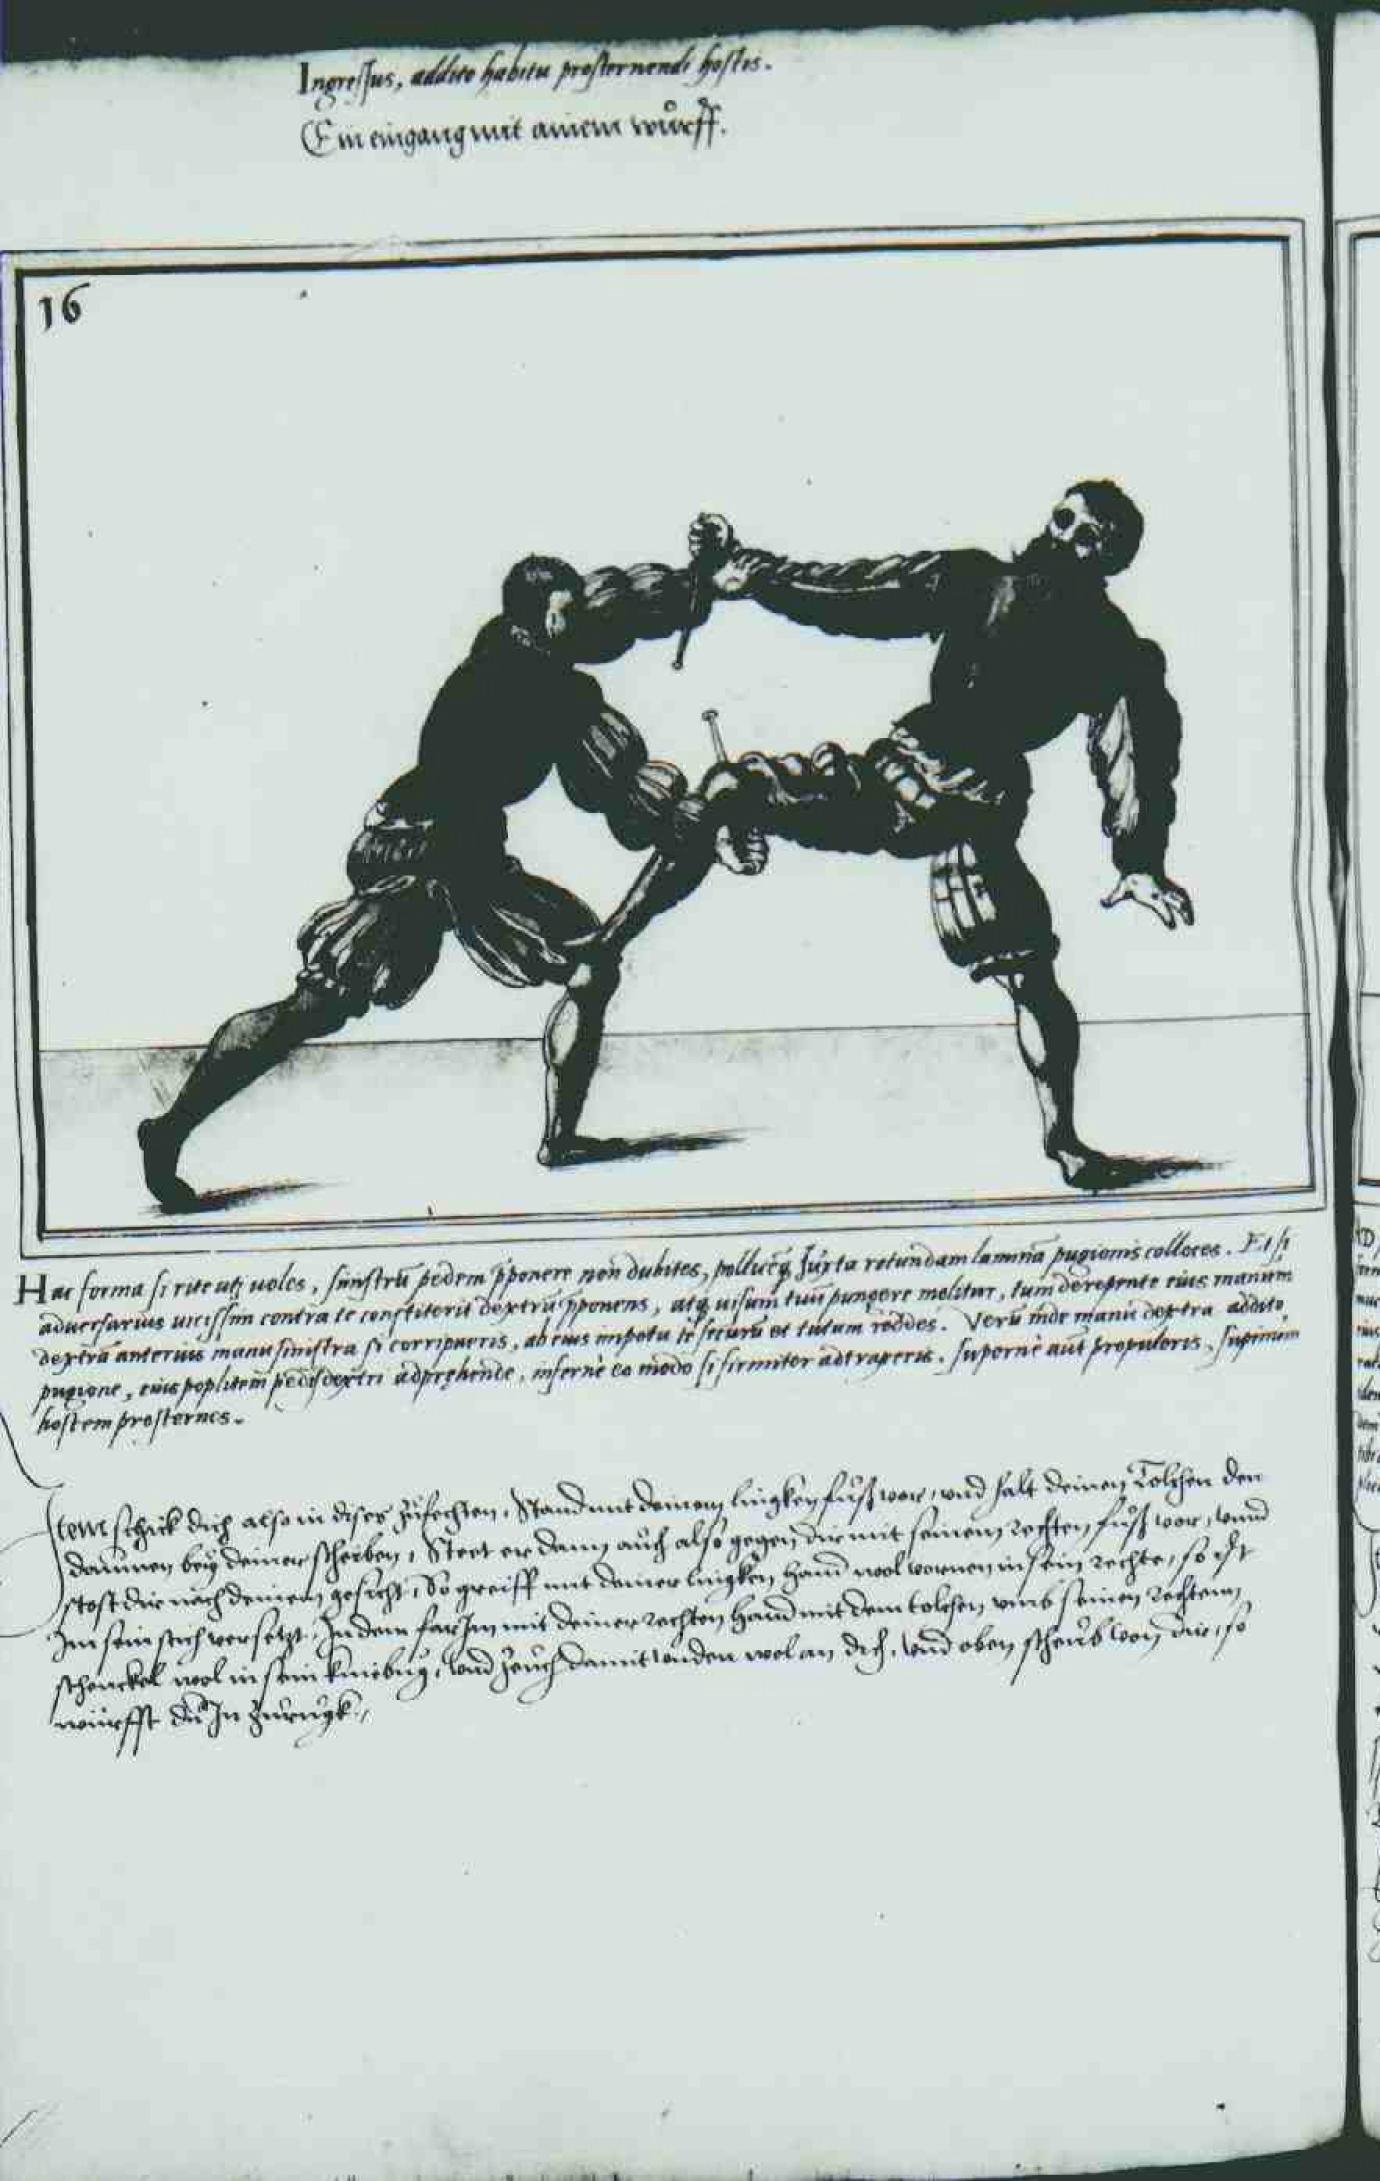 Ingressus, addito habitu prosternendi hostis.
Ein eingang mit ainem wurff.
16
Hac forma si rite uti uoles, sinistrũ pedem p̃ponere non dubites, pollucẽq; Juxta rotundam laminã pugionis colloces. Et si
aduersarius uicissim contra te constiterit dextrũ p̃ponens, atq; uisum tuũ pungere molitur, tum derepente eius manum
dextrã anterius manu sinistra si corripueris, ab eius impetu te securũ et tutum reddes. Verũ inde manu dextra addito
pugione, eius poplitem pedis dextri adprehende, inferne eo modo si firmiter adtraxeris, superne aut propuleris, supinum
hostem prosternes.
Item schick dich also in diser zufechten, Stand mit deinem lingken fuß vor, und halt deinen Tolchen den
daumen bey deiner scheiben, Steet er dann auch also gegen dir mit seinem rechten fuß vor, unnd
stost dir nach deinem gesicht, So greiff mit deiner lingken hand wol vornen in sein rechte, so ist
Im sein stich versetzt, In dem far Im mit deiner rechten hand mit dem tolchen umb seinen rechten
schenckel wol in sein kniebug, und zeuch damit unden wol an dich, und oben scheub von dir, so
wurfft du In zurugk.